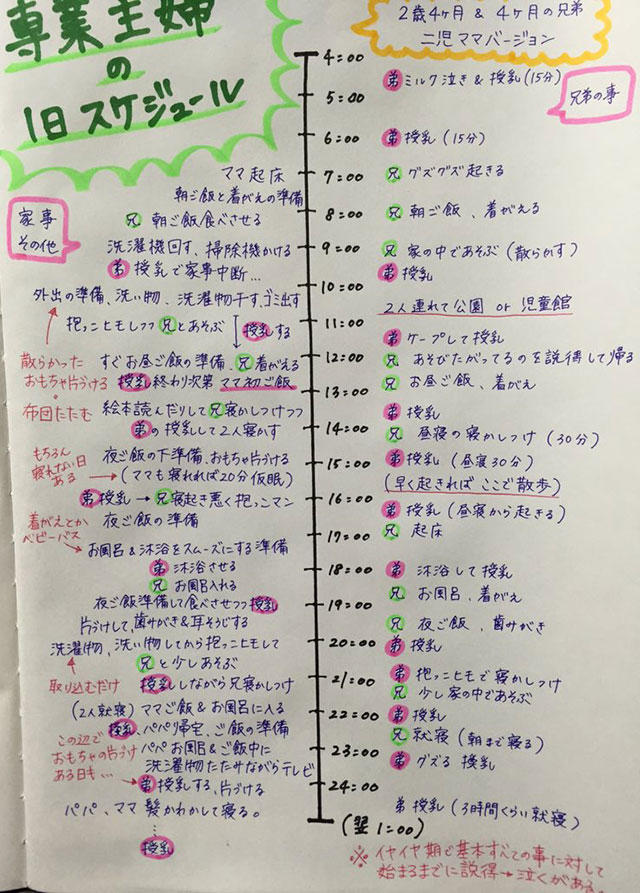 専業主婦
の
1日スケジュール
2歳4ヶ月 & 4ヶ月の兄弟
二児ママバージョン
家事
その他
ママ起床
朝ご飯と着がえの準備
兄 朝ご飯食べさせる
洗濯機回す、掃除機かける
弟 授乳で家事中断…
外出の準備、洗い物、洗濯物干す、ゴミ出す
抱っこヒモしつつ兄とあそぶ 授乳する
すぐお昼ご飯の準備、兄着がえる
散らかった
おもちゃ片づける
授乳終わり次第 ママ初ご飯
布団たたむ
絵本読んだりして兄寝かしつけつつ
弟の授乳して2人寝かす
夜ご飯の下準備、おもちゃ片づける
もちろん
寝れない日
ある
(ママも寝れれば20分仮眠)
弟授乳→兄寝起き悪く抱っこマン
夜ご飯の準備
着がえとか
ベビーバス
お風呂&沐浴をスムーズにする準備
弟 沐浴させる
兄 お風呂入れる
夜ご飯準備して食べさせつつ授乳
片づけして、歯みがき&耳そうじする
洗濯物、洗い物してから抱っこヒモして
兄と少しあそぶ
取り込むだけ
授乳しながら兄寝かしつけ
(2人就寝) ママご飯&お風呂に入る
授乳、パパ帰宅、ご飯の準備
この辺で
おもちゃ片づけ
ある日も…
パパお風呂&ご飯中に
洗濯物たたみながらテレビ
弟授乳する、片づける
パパ、ママ 髪かわかして寝る。
…
授乳
4:00
5:00
6:00
7:00
8:00
9:00
10:00
11:00
12:00
13:00
14:00
15:00
16:00
17:00
18:00
19:00
20:00
21:00
22:00
23:00
24:00
(翌1:00)
兄弟の事
弟 ミルク泣き & 授乳(15分)
弟 授乳(15分)
兄 グズグズ起きる
兄 朝ご飯、着がえる
兄 家の中であそぶ(散らかす)
弟 授乳
2人連れて公園 or 児童館
弟 ケープして授乳
兄 あそびたがってるのを説得して帰る
兄 お昼ご飯、着がえ
弟 授乳
兄 昼寝の寝かしつけ(30分)
弟 授乳(昼寝30分)
(早く起きればここで散歩)
弟 授乳(昼寝から起きる)
兄 起床
弟 沐浴して授乳
兄 お風呂、着がえ
兄 夜ご飯、歯みがき
弟 授乳
弟 抱っこヒモで寝かしつけ
兄 少し家の中であそぶ
弟 授乳
兄 就寝(朝まで寝る)
弟 グズる 授乳
弟 授乳(3時間くらい就寝)
※イヤイヤ期で基本すべての事に対して
始まるまでに説得→泣くがある。